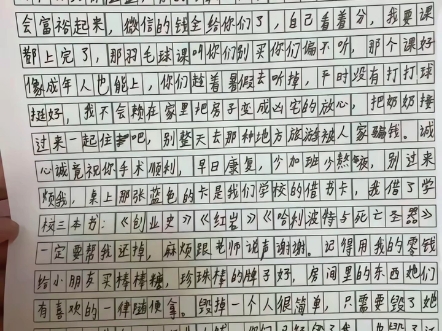 会富裕起来，微信的钱全给你们了，自己看着分，我要课
都上完了，那羽毛球课叫你们别买你们偏不听，那个课好
像成年人也能上，你们趁着暑假去听掉，平时没有打打球
挺好，我不会赖在家里把房子变成凶宅的放心，把奶奶接
过来一起住吧，别整天去那种地方旅游被人家骗钱。诚
心诚意祝你手术顺利，早日康复，少加班少熬夜，别过来
烦我，桌上那张蓝色的卡是我们学校的借书卡，我借了学
校三本书：《创业史》《红岩》《哈利波特与死亡圣器》
一定要帮我还掉，麻烦跟老师说声谢谢。记得用我的零钱
给小朋友买棒棒糖，珍珠棒的牌子好，房间里的东西她们
有喜欢的一律随便拿。毁掉一个人很简单，只需要毁了她